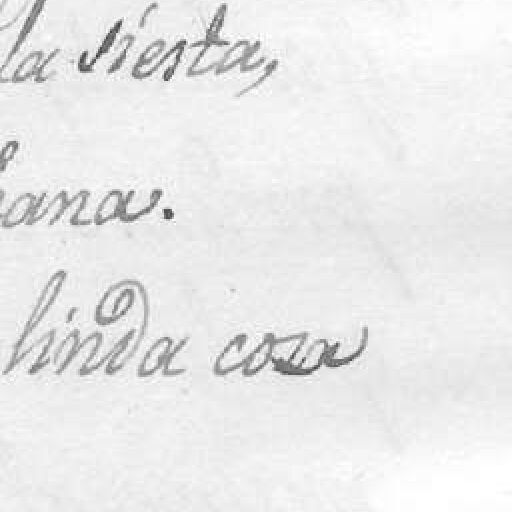 la siesta,
ana.
linda cosa